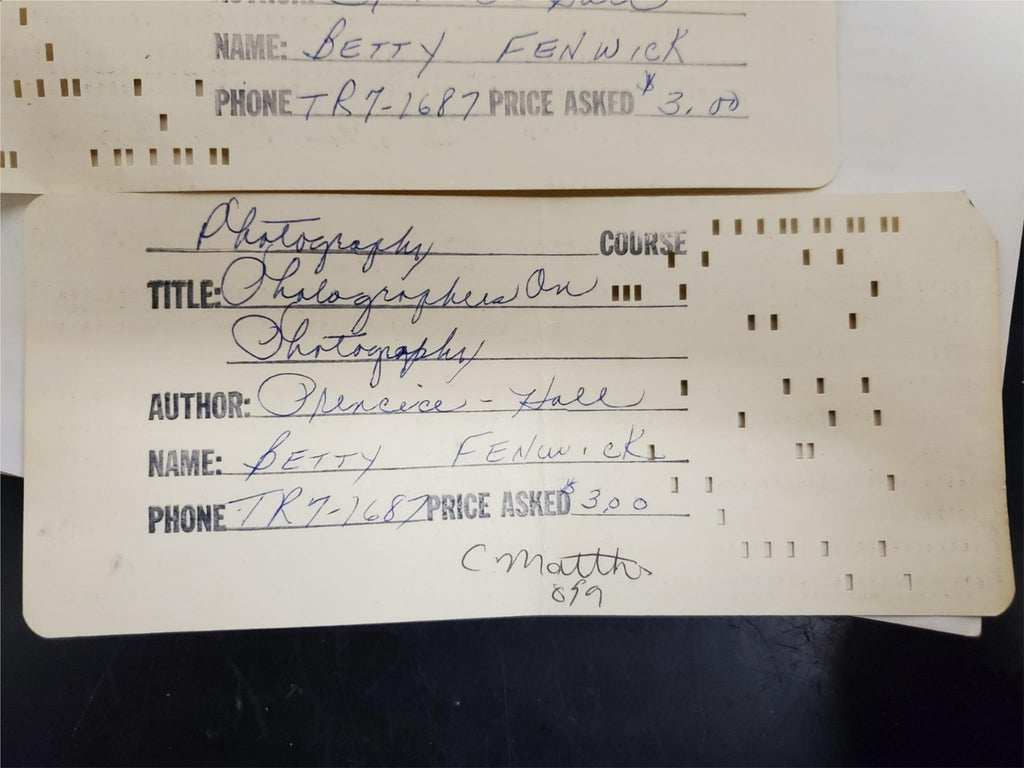 NAME: BETTY FENWICK
PHONE TR7-1687 PRICE ASKED $3.00
Photography COURSE
TITLE: Photographers On
Photography
AUTHOR: Prencice - Hall
NAME: BETTY FENWICK
PHONE TR7-1687 PRICE ASKED $3.00
C Matth